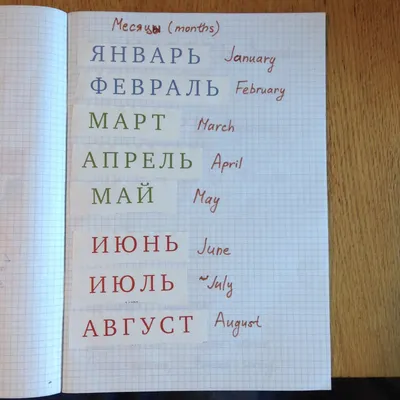 Месяцы (months)
ЯНВАРЬ January
ФЕВРАЛЬ February
МАРТ March
АПРЕЛЬ April
МАЙ May
ИЮНЬ June
ИЮЛЬ ~July
АВГУСТ August